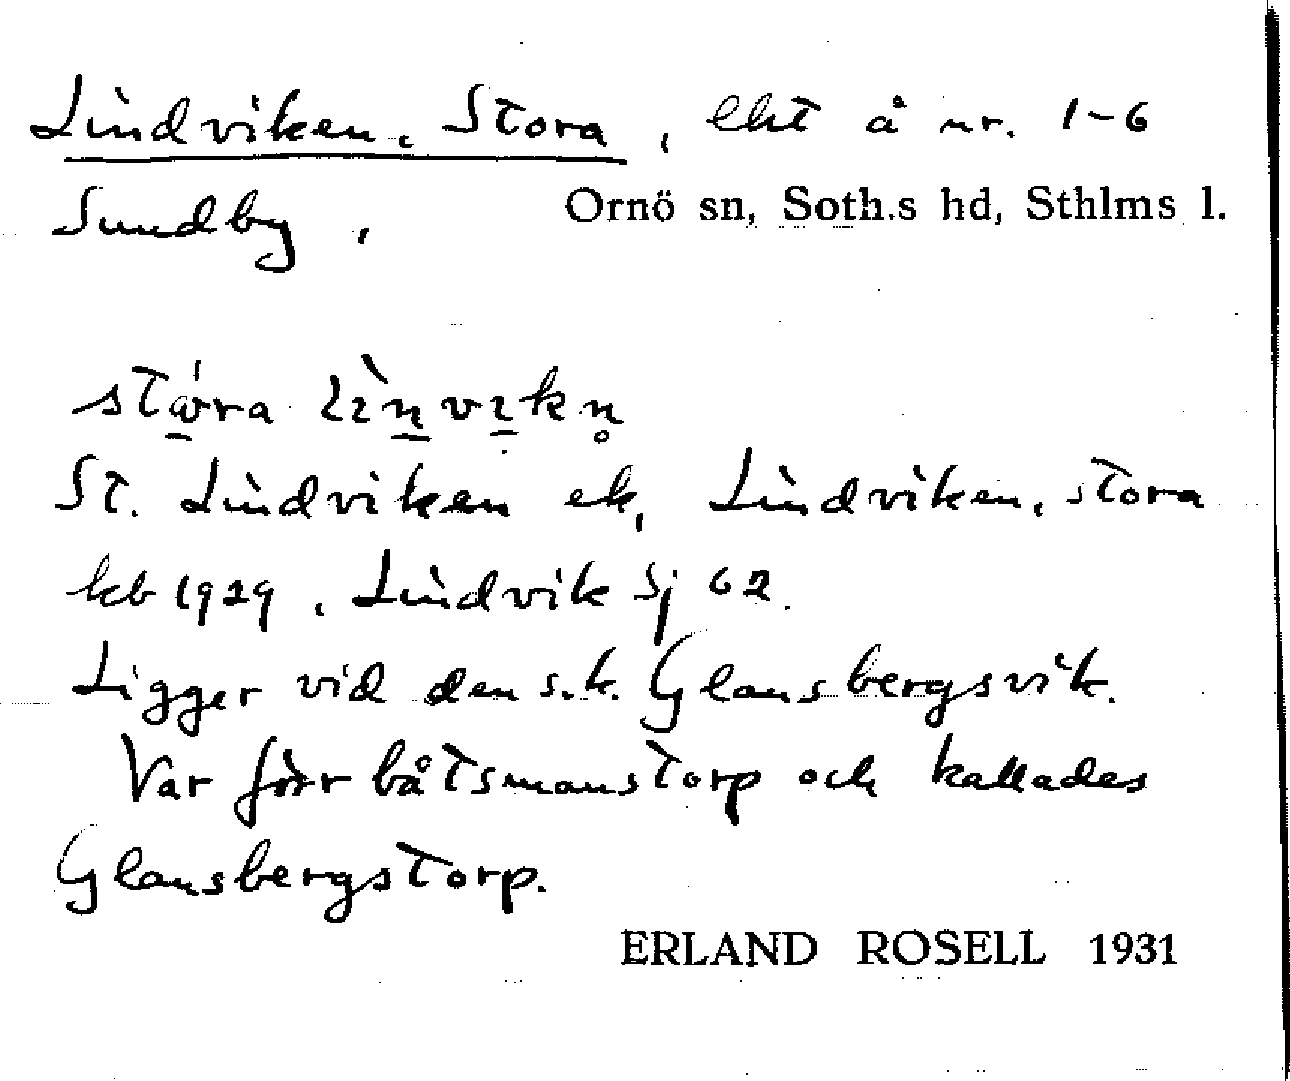 Lindviken, Stora, lht å nr. 1-6
Sundby, Ornö sn, Soth.s hd, Sthlms l.
St. Lindviken ek, Lindviken, stora
kb 1929, Lindvik Sj 62.
Ligger vid den s.k. Glansbergsvik.
Var förr båtsmanstorp och kallades
Glansbergstorp.
ERLAND ROSELL 1931